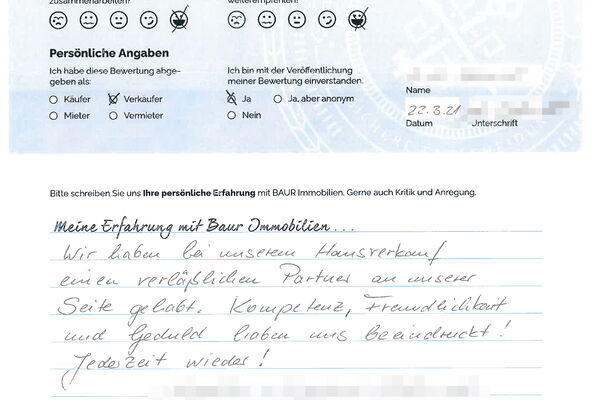 zusammenarbeiten?
weiterempfehlen?
Persönliche Angaben
Ich habe diese Bewertung abge-
geben als:
Käufer Verkäufer
Mieter Vermieter
Ich bin mit der Veröffentlichung
meiner Bewertung einverstanden.
Ja Ja, aber anonym
Nein
Name
22.3.21
Datum Unterschrift
Bitte schreiben Sie uns Ihre persönliche Erfahrung mit BAUR Immobilien. Gerne auch Kritik und Anregung.
Meine Erfahrung mit Baur Immobilien...
Wir haben bei unserem Hausverkauf
einen verläßlichen Partner an unserer
Seite gehabt. Kompetenz, Freundlichkeit
und Geduld haben uns beeindruckt!
Jederzeit wieder!